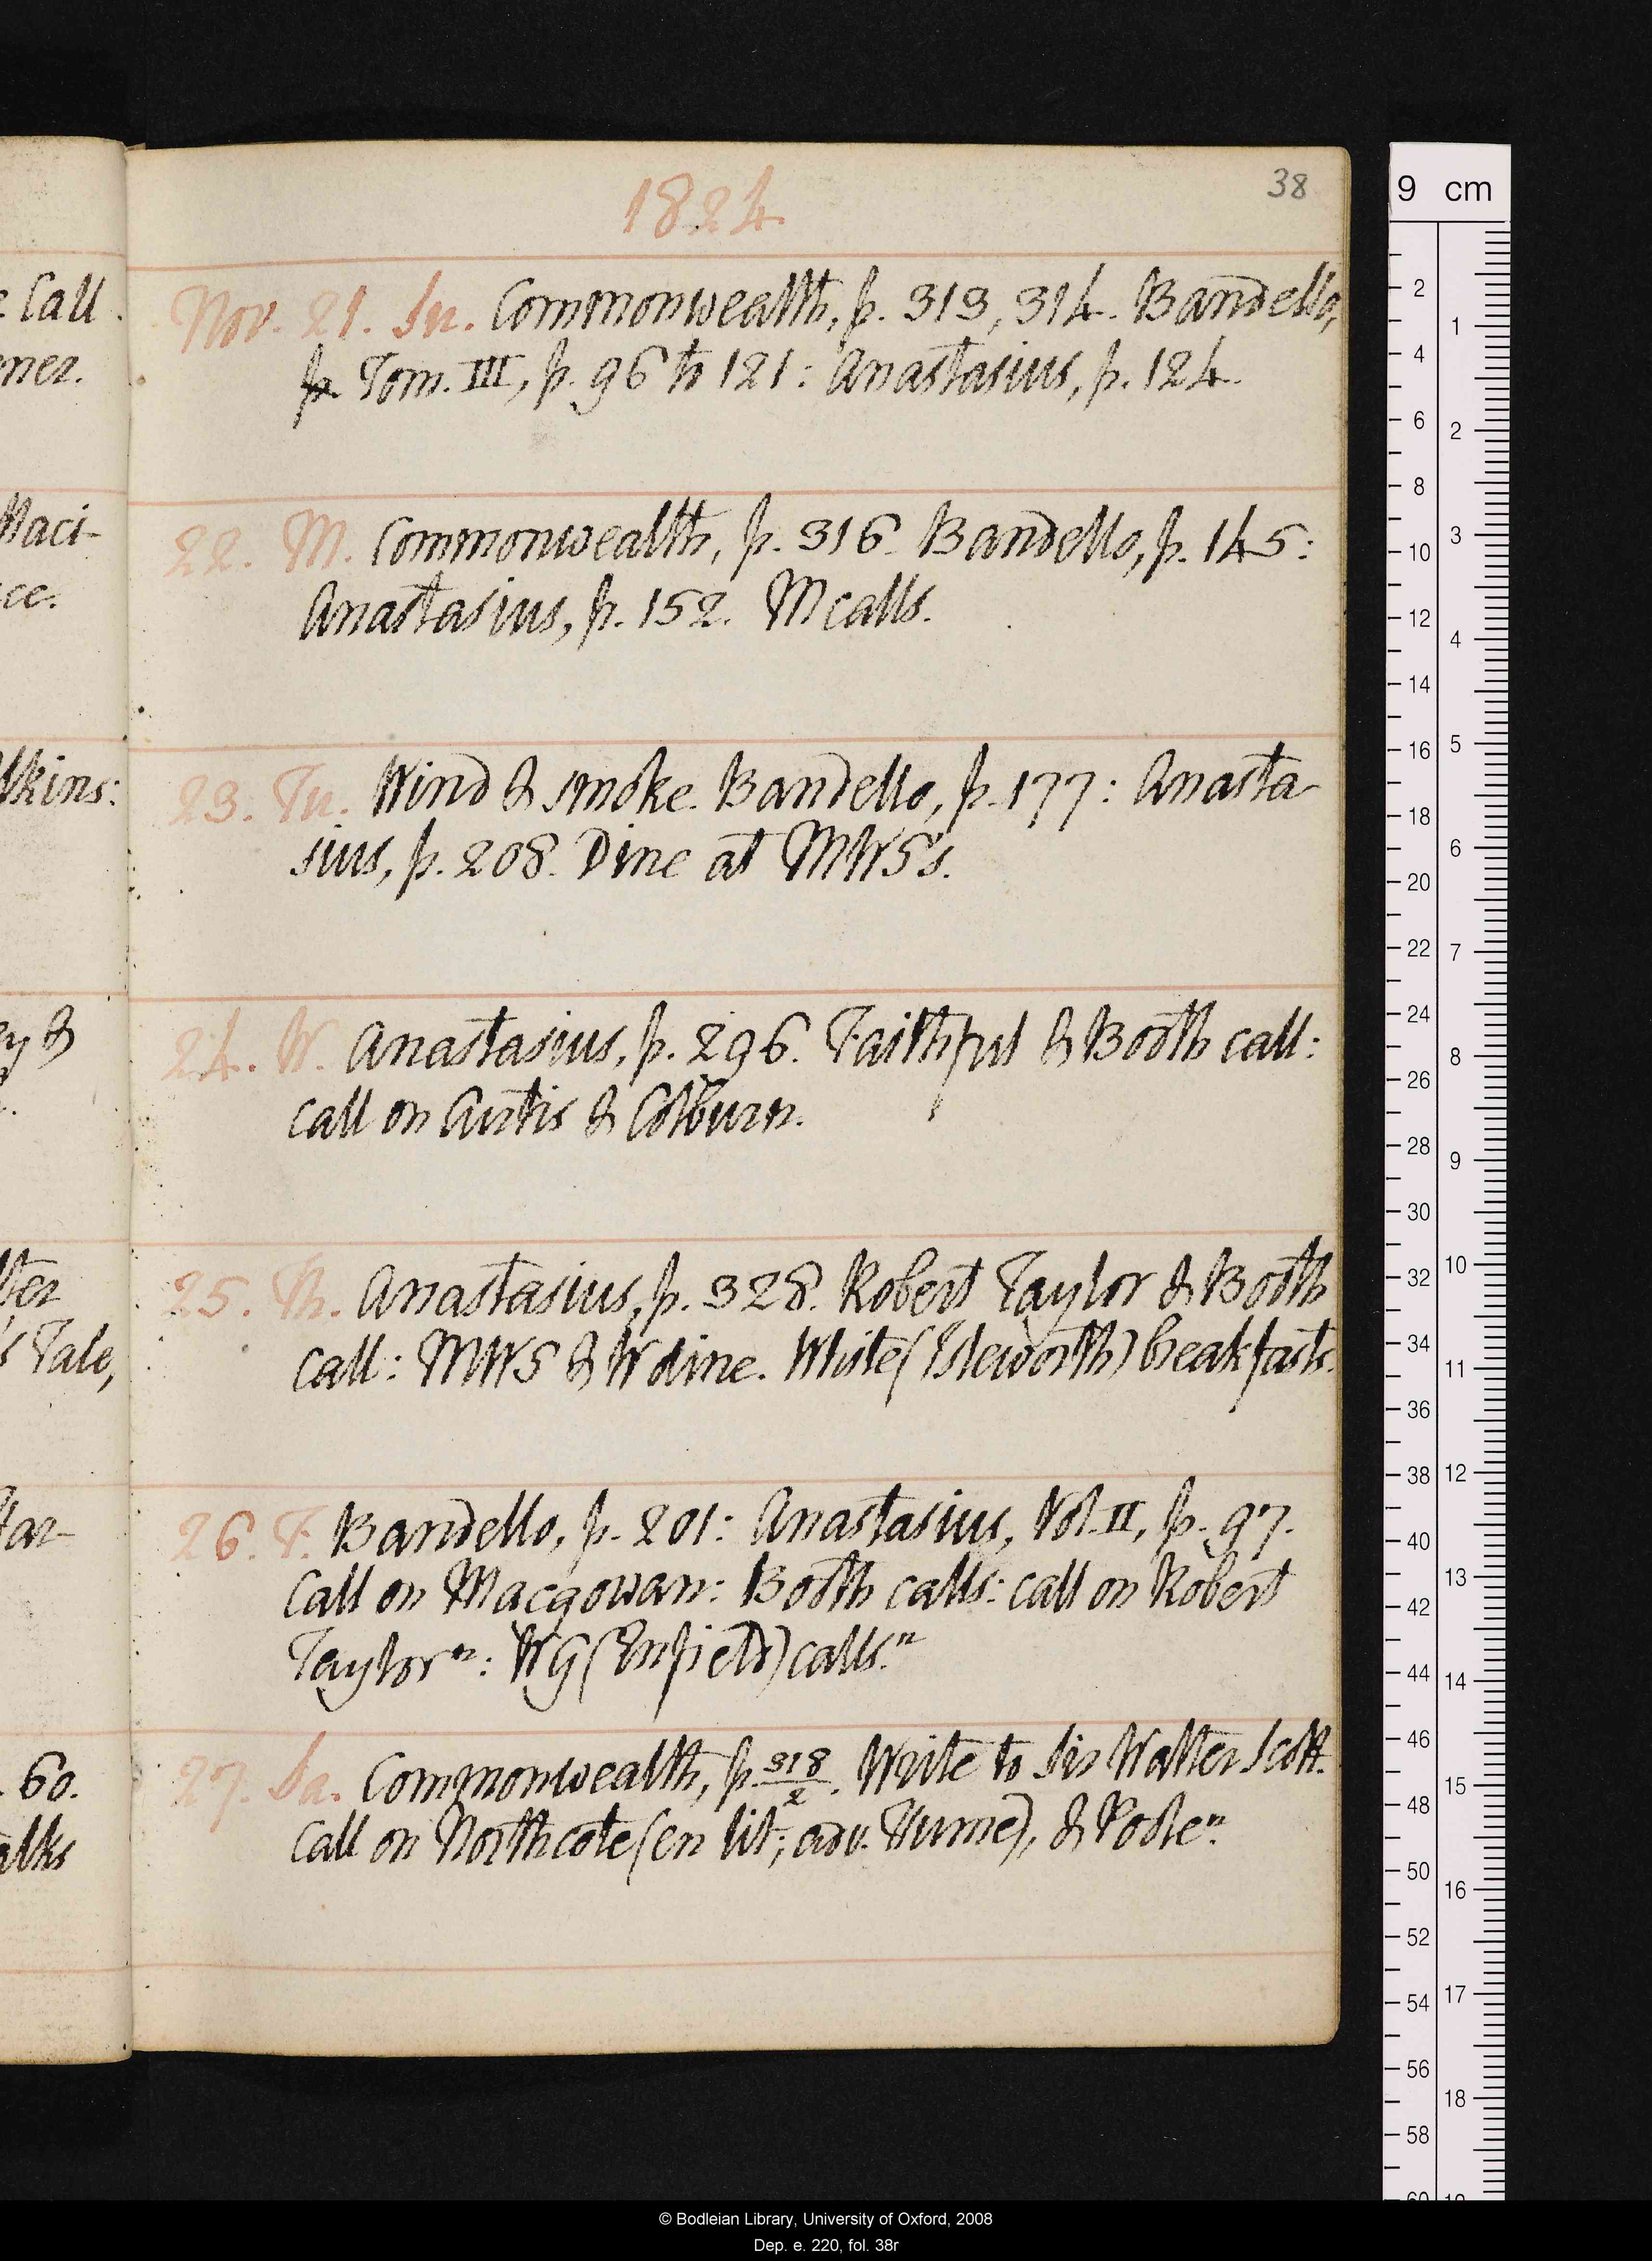 38
1824
Nov. 21. Su. Commonwealth, p. 313, 314. Bandello,
p. Tom. III, p. 96 to 121: Anastasius, p. 124.
22. M. Commonwealth, p. 316. Bandello, p. 145:
Anastasius, p. 152. M calls.
23. Tu. Wind & smoke. Bandello, p. 177: Anasta-
sius, p. 208. Dine at MWS's.
24. W. Anastasius, p. 296. Faithful & Booth call:
call on Curtis & Colburn.
25. Th. Anastasius, p. 328. Robert Taylor & Booth
call: MWS & W dine. White (Isleworth) breakfasts.
26. F. Bandello, p. 201: Anastasius, Vol. II, p. 97.
Call on Macgowan: Booth calls: call on Robert
Taylor n: WG (Enfield) calls. n
27. Sa. Commonwealth, p. 318/2. Write to Sir Walter Scott.
Call on Northcote (en lit; adv. Hume), & Poole n.
e Call.
ner.
Maci-
ce.
lkins:
ey &
lter
's Tale,
tar-
. 60.
alks
9 cm
2
4
6
8
10
12
14
16
18
20
22
24
26
28
30
32
34
36
38
40
42
44
46
48
50
52
54
56
58
60
1
2
3
4
5
6
7
8
9
10
11
12
13
14
15
16
17
18
© Bodleian Library, University of Oxford, 2008
Dep. e. 220, fol. 38r